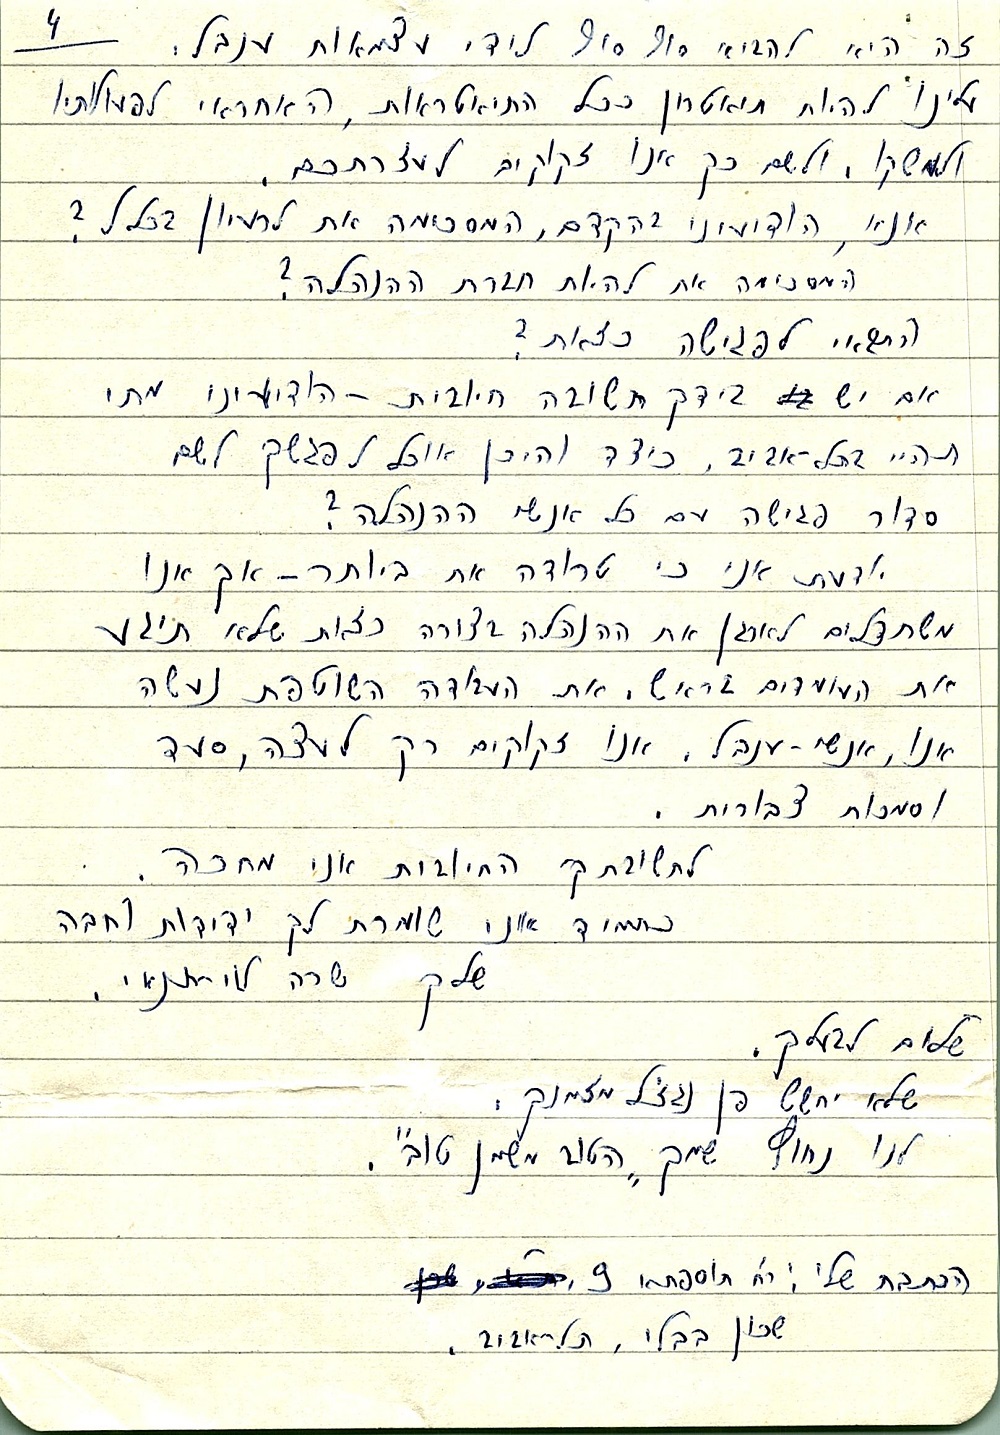 4
זה היא להביא סוף סוף לידי עצמאות ענבל.
עלינו להיות תיאטרון ככל התיאטראות, האחראי לפעולותיו
ולמשקו. ולשם כך אנו זקוקים לעזרתכם.
אנא, הודיעינו בהקדם, המסכימה את לרעיון בכלל?
המסכימה את להיות חברת ההנהלה?
התבואי לפגישה כזאת?
אם יש בידך תשובה חיובית - הודיעינו מתי
תהיי בתל-אביב, כיצד והיכן אוכל לפגשך לשם
סדור פגישה עם כל אנשי ההנהלה?
יודעת אני כי טרודה את ביותר - אך אנו
משתדלים לארגן את ההנהלה בצורה כזאת שלא תיגע
את העומדים בראש. את העבודה השוטפת נעשה
אנו, אנשי-ענבל. אנו זקוקים רק לעצה, סעד
וסמכות צבורית.
לתשובתך החיובית אני מחכה.
כתמיד אני שומרת לך ידידות וחבה
שלך שרה לוי-תנאי.
שלום לבעלך.
שלא יחשש פן נגזל מזמנך.
לנו נחוץ שמך "הטוב משמן טוב".
הכתבת שלי: רח' תוספתא 9,
שכון בבלי, תל-אביב.